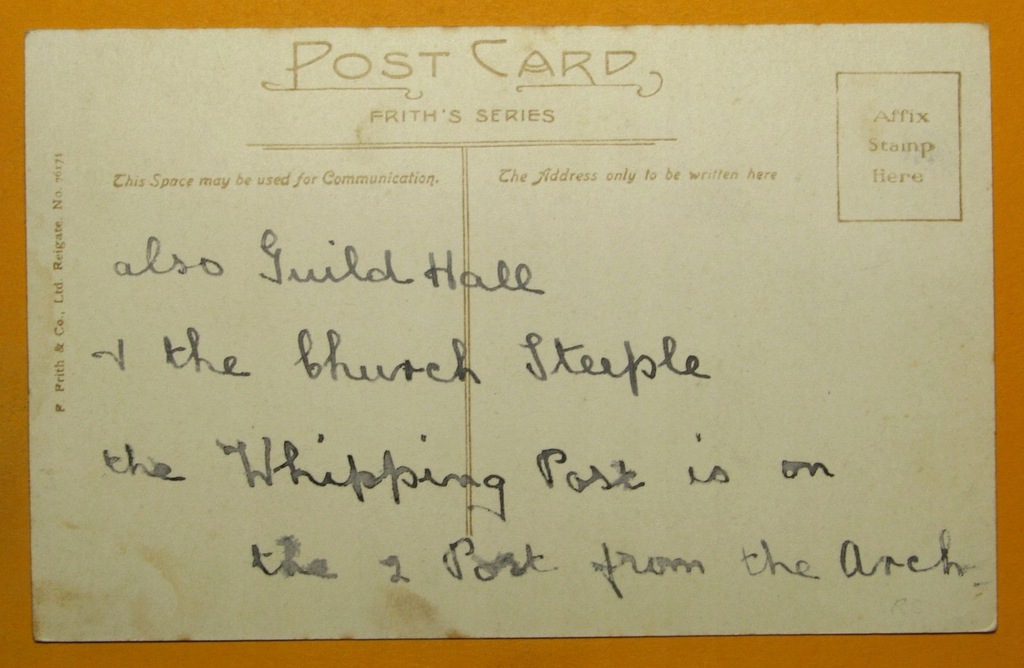 POST CARD
FRITH'S SERIES
This Space may be used for Communication.
The Address only to be written here
Affix
Stamp
Here
F Frith & Co., Ltd. Reigate. No. 76171
also Guild Hall
& the Church Steeple
the Whipping Post is on
the 2 Post from the Arch